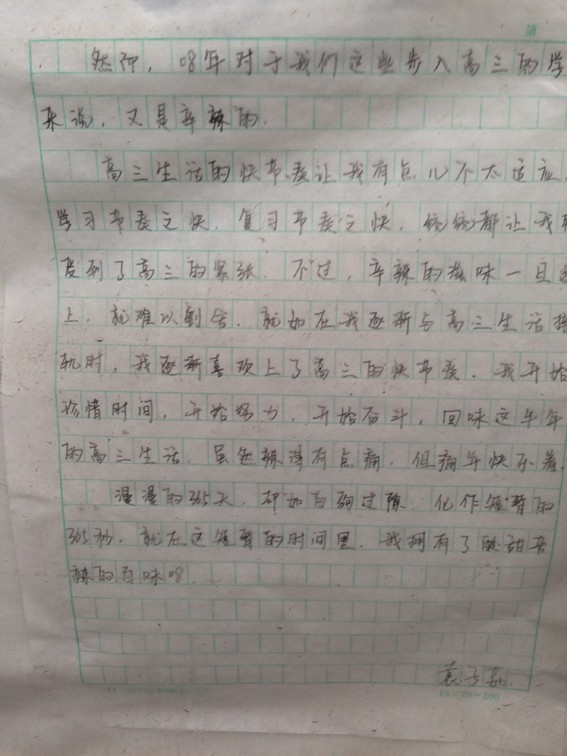 第
然而，08年对于我们这些步入高三的学
来说，又是辛辣的.
高三生活的快节奏让我有点儿不太适应，
学习节奏之快，复习节奏之快，统统都让我
受到了高三的紧张. 不过，辛辣的滋味一旦
上，就难以割舍. 就如在我逐渐与高三生活接
轨时，我逐渐喜欢上了高三的快节奏. 我开始
珍惜时间，开始努力，开始奋斗，回味这半年
的高三生活. 虽然辣得有点痛，但痛并快乐着.
漫漫的365天，却如白驹过隙. 化作短暂的
365秒，就在这短暂的时间里，我拥有了酸甜辛
辣的百味08.